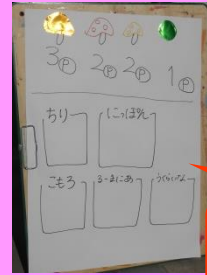 3Ⓟ 2Ⓟ 2Ⓟ 1Ⓟ
ちり にっぽん
こもろ るーまにあ うくらいな